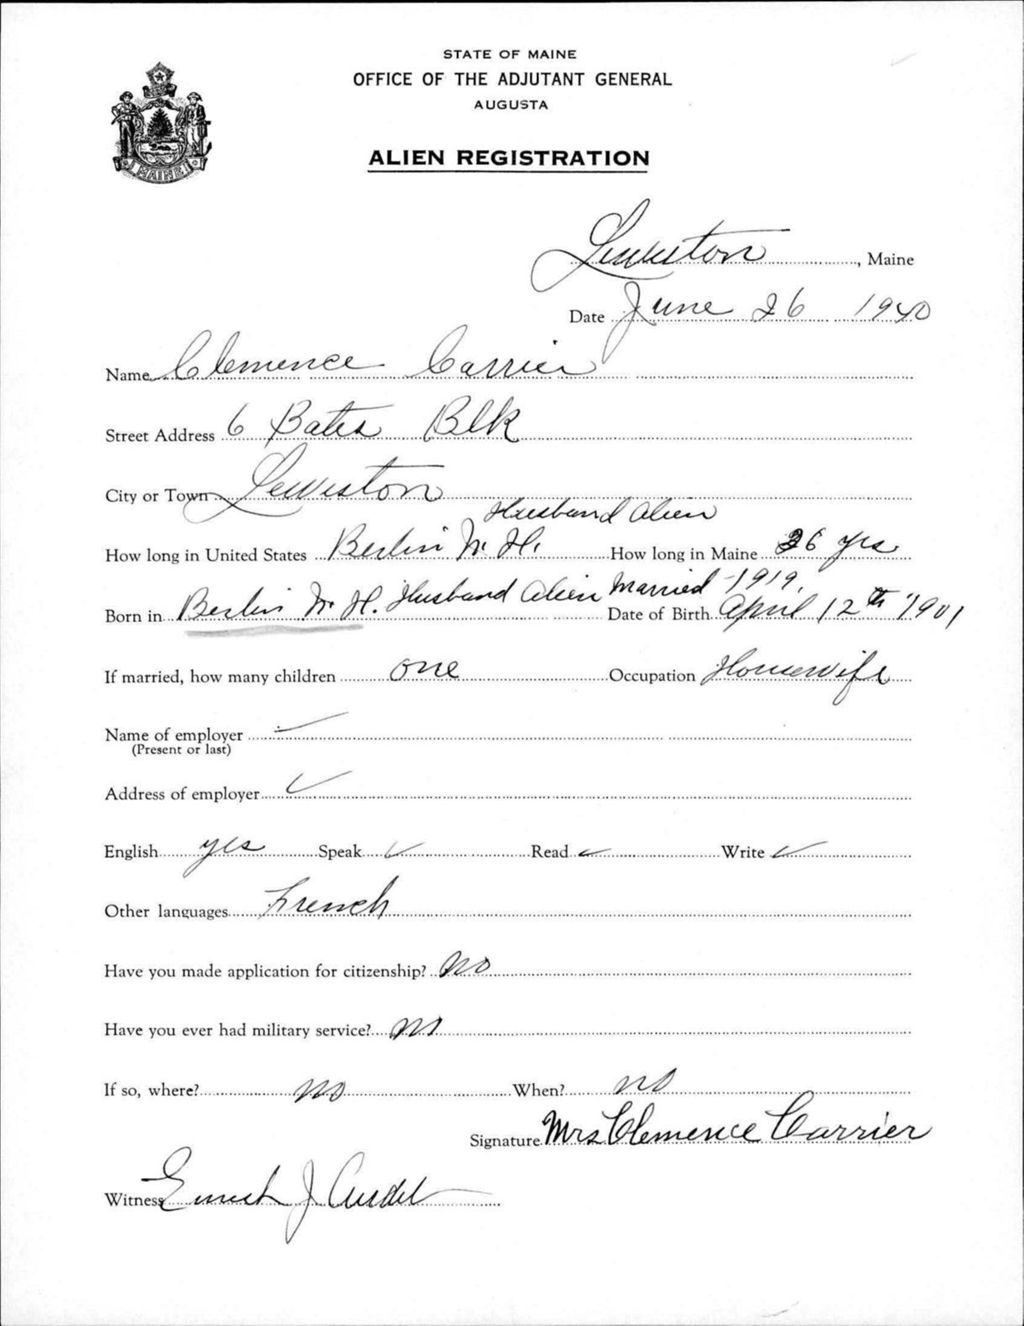 STATE OF MAINE
OFFICE OF THE ADJUTANT GENERAL
AUGUSTA
ALIEN REGISTRATION
MAINE
Lewiston, Maine
Date June 26 1940
Name Clemence Carrier
Street Address 6 Bates Blk
City or Town Lewiston
Husband Alien
How long in United States Berlin N. H. How long in Maine 36 yrs
Born in Berlin N. H. Husband Alien Married 1919, Date of Birth April 12th 1901
If married, how many children one Occupation Housewife
Name of employer ✓
(Present or last)
Address of employer ✓
English yes Speak ✓ Read ✓ Write ✓
Other languages French
Have you made application for citizenship? no
Have you ever had military service? no
If so, where? no When? no
Signature Mrs Clemence Carrier
Witness J.